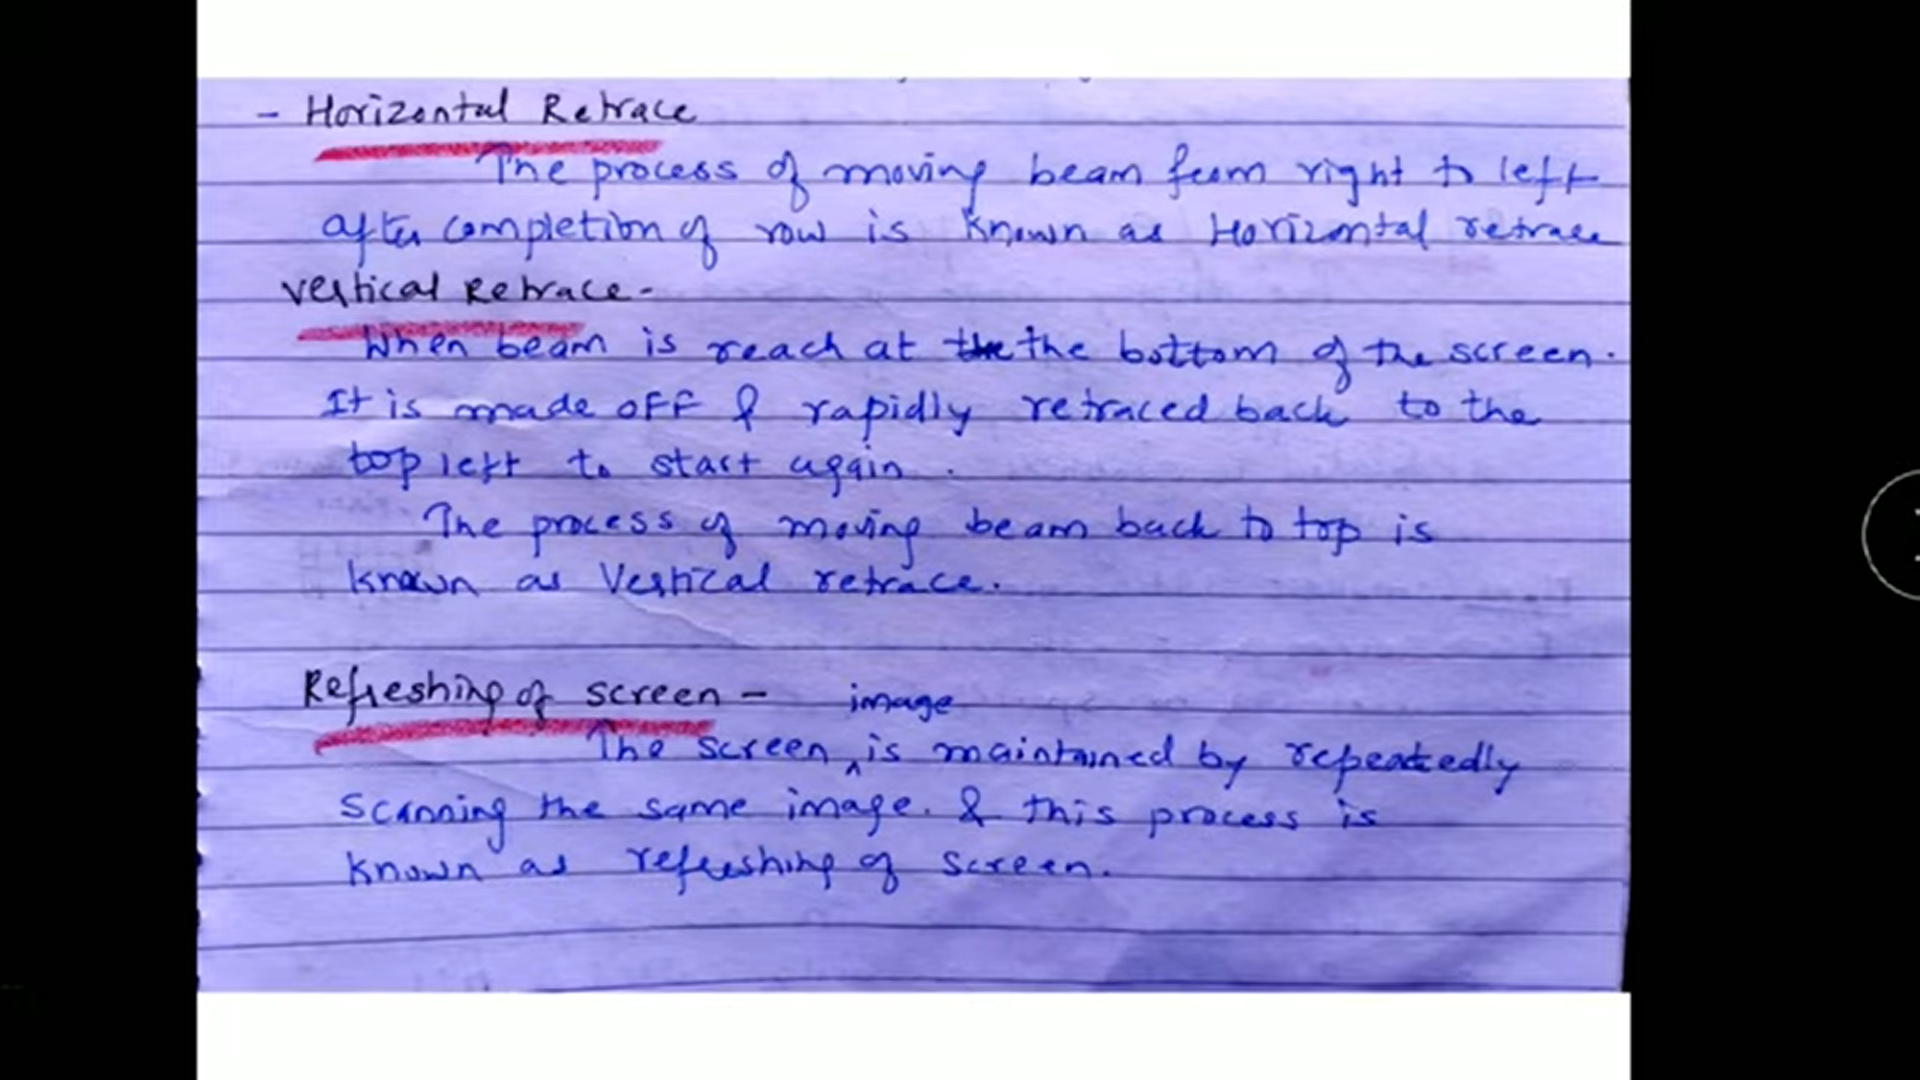 - Horizontal Retrace
The process of moving beam from right to left
after completion of row is known as Horizontal retrace
Vertical Retrace -
When beam is reach at the the bottom of the screen.
It is made OFF & rapidly retraced back to the
top left to start again.
The process of moving beam back to top is
known as Vertical retrace.
Refreshing of screen -
image
The screen ^ is maintained by repeatedly
scanning the same image. & this process is
known as refreshing of screen.